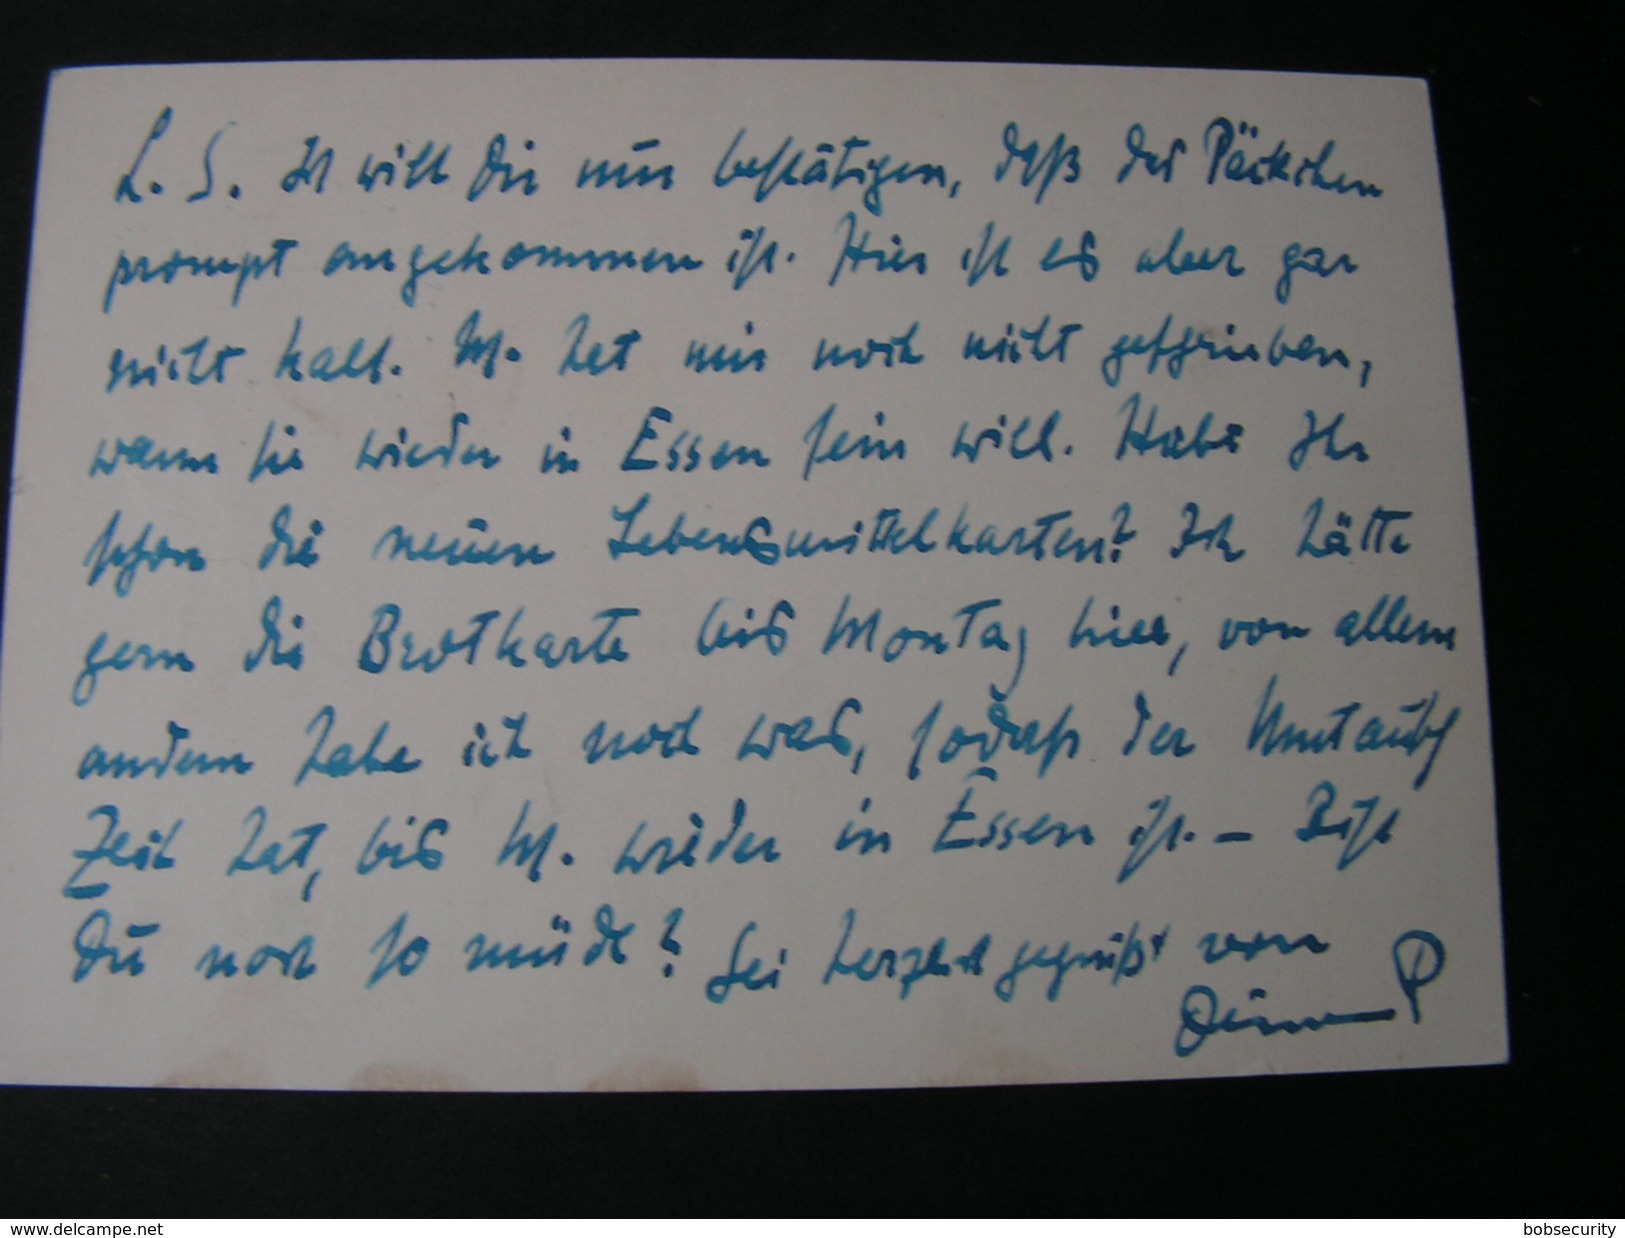 L. S. Ich will Dir nur bestätigen, daß das Päckchen
prompt angekommen ist. Hier ist es aber gar
nicht kalt. M. hat mir noch nicht geschrieben,
wann sie wieder in Essen sein will. Habt Ihr
schon die neuen Lebensmittelkarten? Ich hätte
gern die Brotkarte bis Montag hier, von allem
andern habe ich noch was, sodaß der Umtausch
Zeit hat, bis M. wieder in Essen ist. – Bist
Du noch so müde? Sei herzlich gegrüßt von
P
www.delcampe.net
bobsecurity